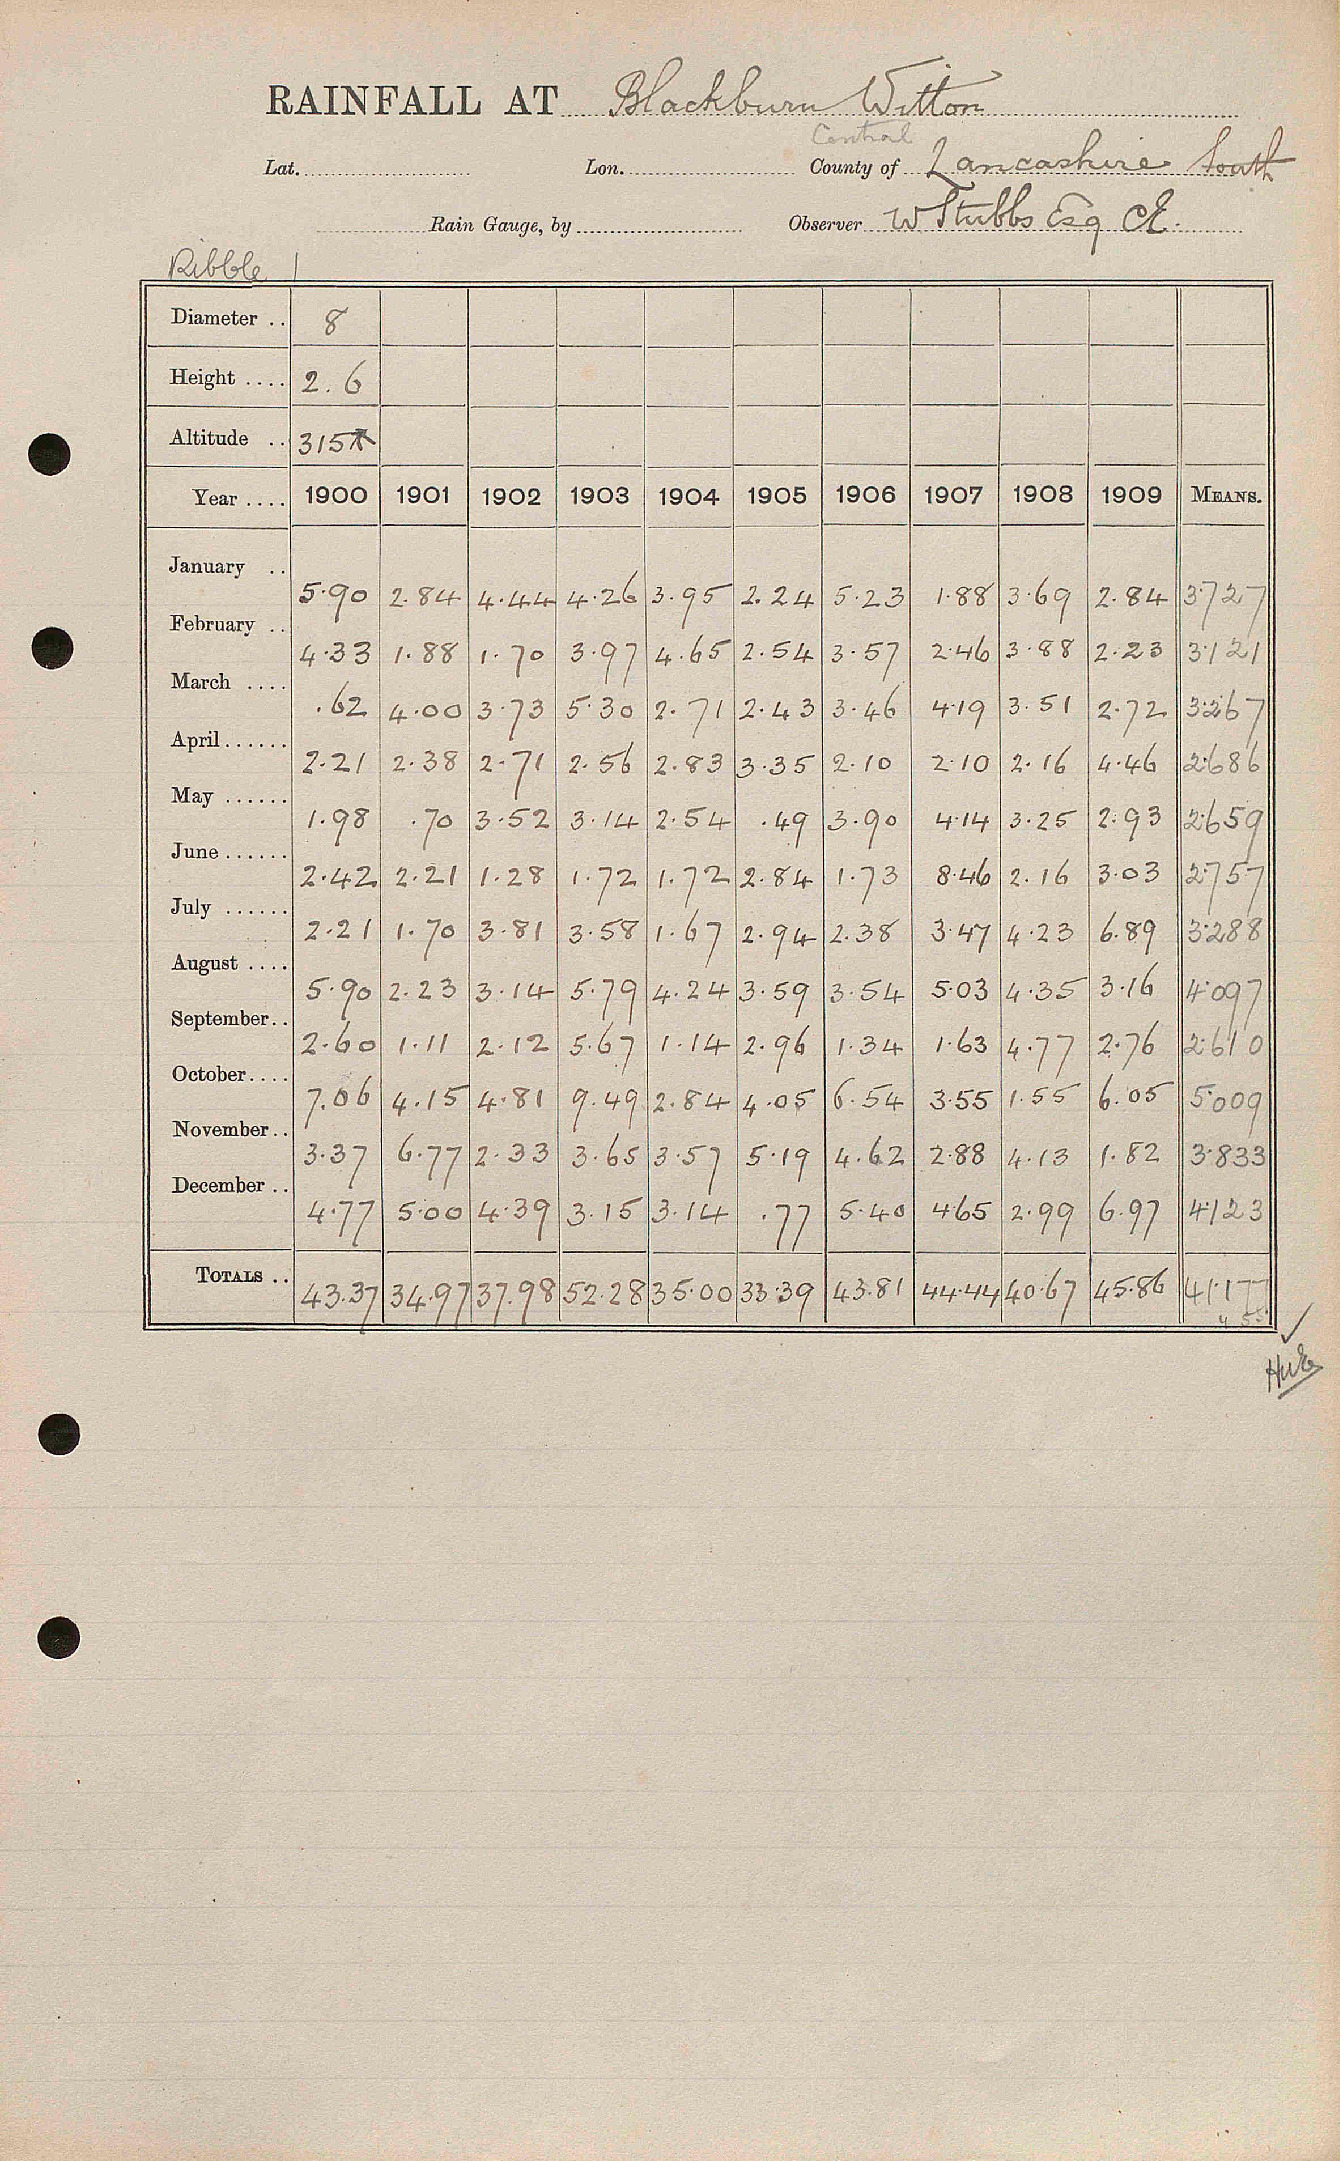 RAINFALL AT Blackburn Witton
Central
Lat. Lon. County of Lancashire South
Rain Gauge, by Observer W Stubbs Esq CE.
Ribble 1
Diameter .. 8
Height .... 2.6
Altitude .. 315
Year .... 1900 1901 1902 1903 1904 1905 1906 1907 1908 1909 MEANS.
January .. 5.90 2.84 4.44 4.26 3.95 2.24 5.23 1.88 3.69 2.84 3.727
February .. 4.33 1.88 1.70 3.97 4.65 2.54 3.57 2.46 3.88 2.23 3.121
March .... .62 4.00 3.73 5.30 2.71 2.43 3.46 4.19 3.51 2.72 3.267
April ...... 2.21 2.38 2.71 2.56 2.83 3.35 2.10 2.10 2.16 4.46 2.686
May ...... 1.98 .70 3.52 3.14 2.54 .49 3.90 4.14 3.25 2.93 2.659
June ...... 2.42 2.21 1.28 1.72 1.72 2.84 1.73 8.46 2.16 3.03 2.757
July ...... 2.21 1.70 3.81 3.58 1.67 2.94 2.38 3.47 4.23 6.89 3.288
August .... 5.90 2.23 3.14 5.79 4.24 3.59 3.54 5.03 4.35 3.16 4.097
September.. 2.60 1.11 2.12 5.67 1.14 2.96 1.34 1.63 4.77 2.76 2.610
October.... 7.06 4.15 4.81 9.49 2.84 4.05 6.54 3.55 1.55 6.05 5.009
November.. 3.37 6.77 2.33 3.65 3.57 5.19 4.62 2.88 4.13 1.82 3.833
December .. 4.77 5.00 4.39 3.15 3.14 .77 5.40 4.65 2.99 6.97 4.123
TOTALS .. 43.37 34.97 37.98 52.28 35.00 33.39 43.81 44.44 40.67 45.86 41.177